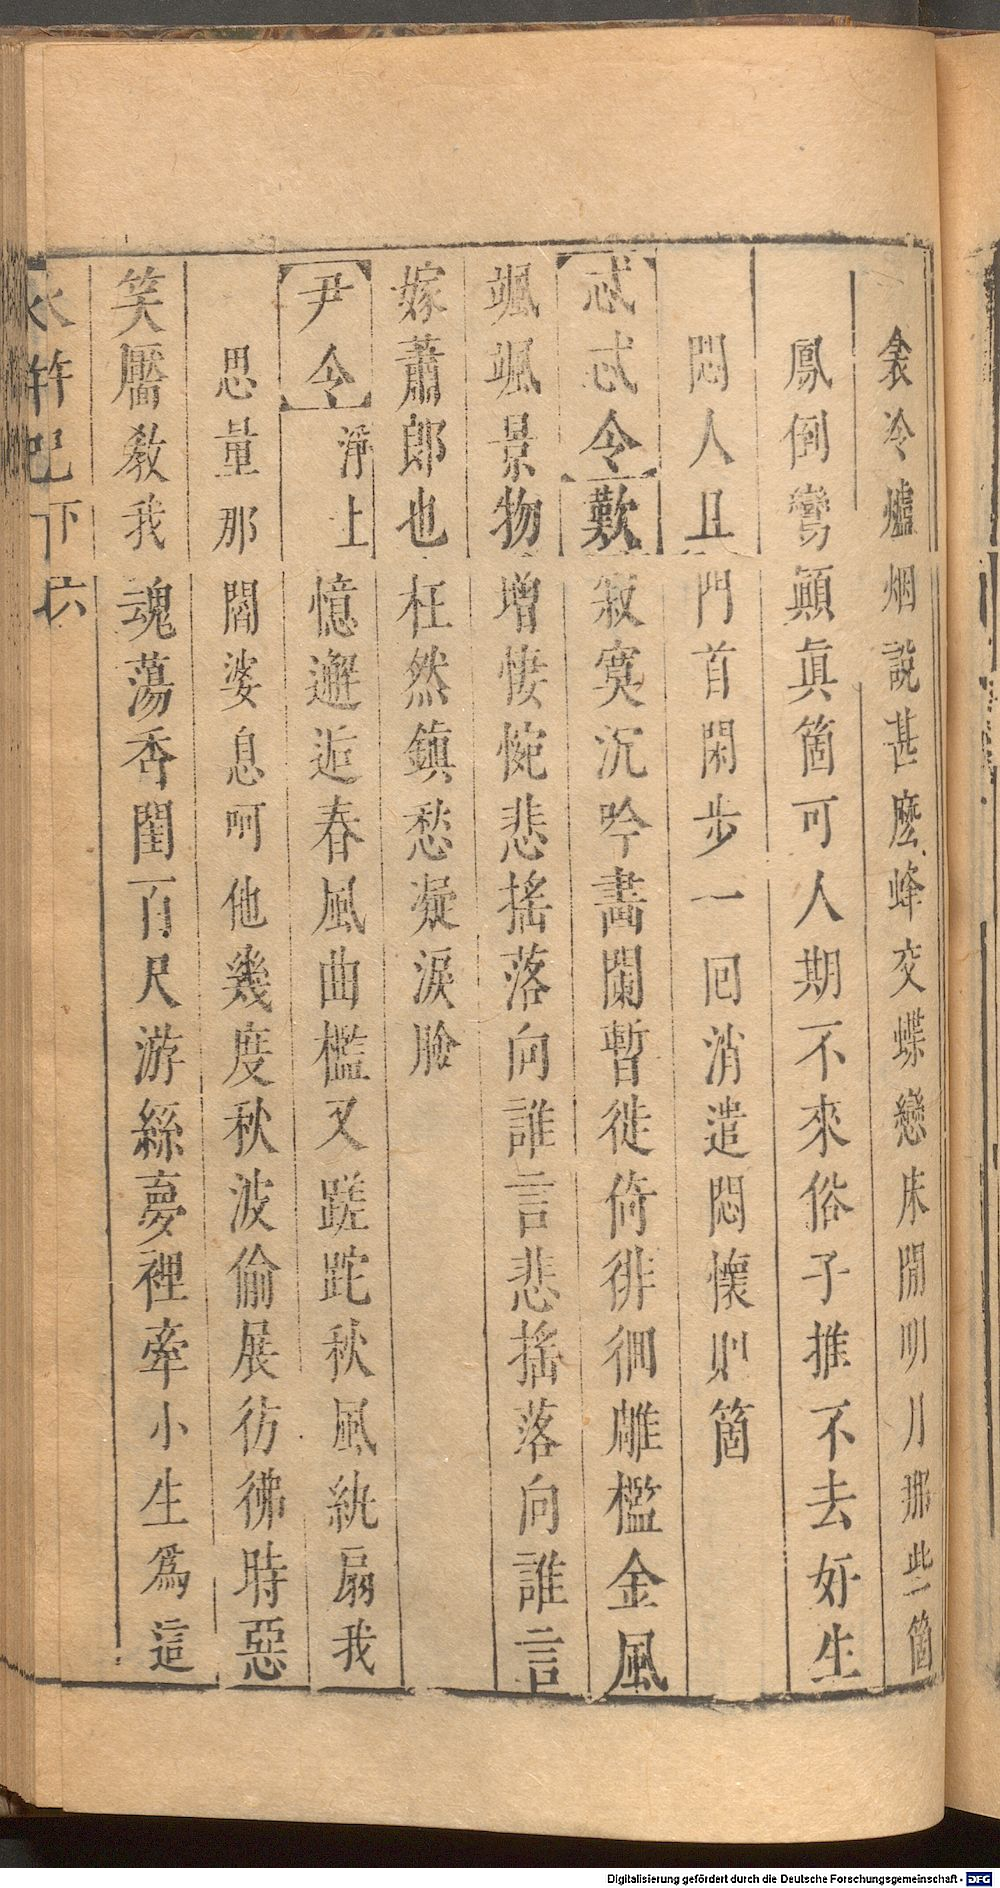 衾冷爐烟說甚麽蜂交蝶戀床閒明月那些箇
鳳倒鸞顛眞箇可人期不來俗子推不去好生
悶人且門首閑步一囘消遣悶懷則箇
忒忒令歎寂寞沉吟畵闌暫徙倚徘徊雕檻金風
颯颯景物增悽惋悲搖落向誰言悲搖落向誰言
嫁蕭郎也枉然鎮愁凝淚臉
尹令淨上憶邂逅春風曲檻又蹉跎秋風紈扇我
思量那閻婆息呵他幾度秋波偷展彷彿時惡
笑靨敎我魂蕩香閨百尺游絲夢裡牽小生爲這
下六
Digitalisierung gefördert durch die Deutsche Forschungsgemeinschaft - DFG